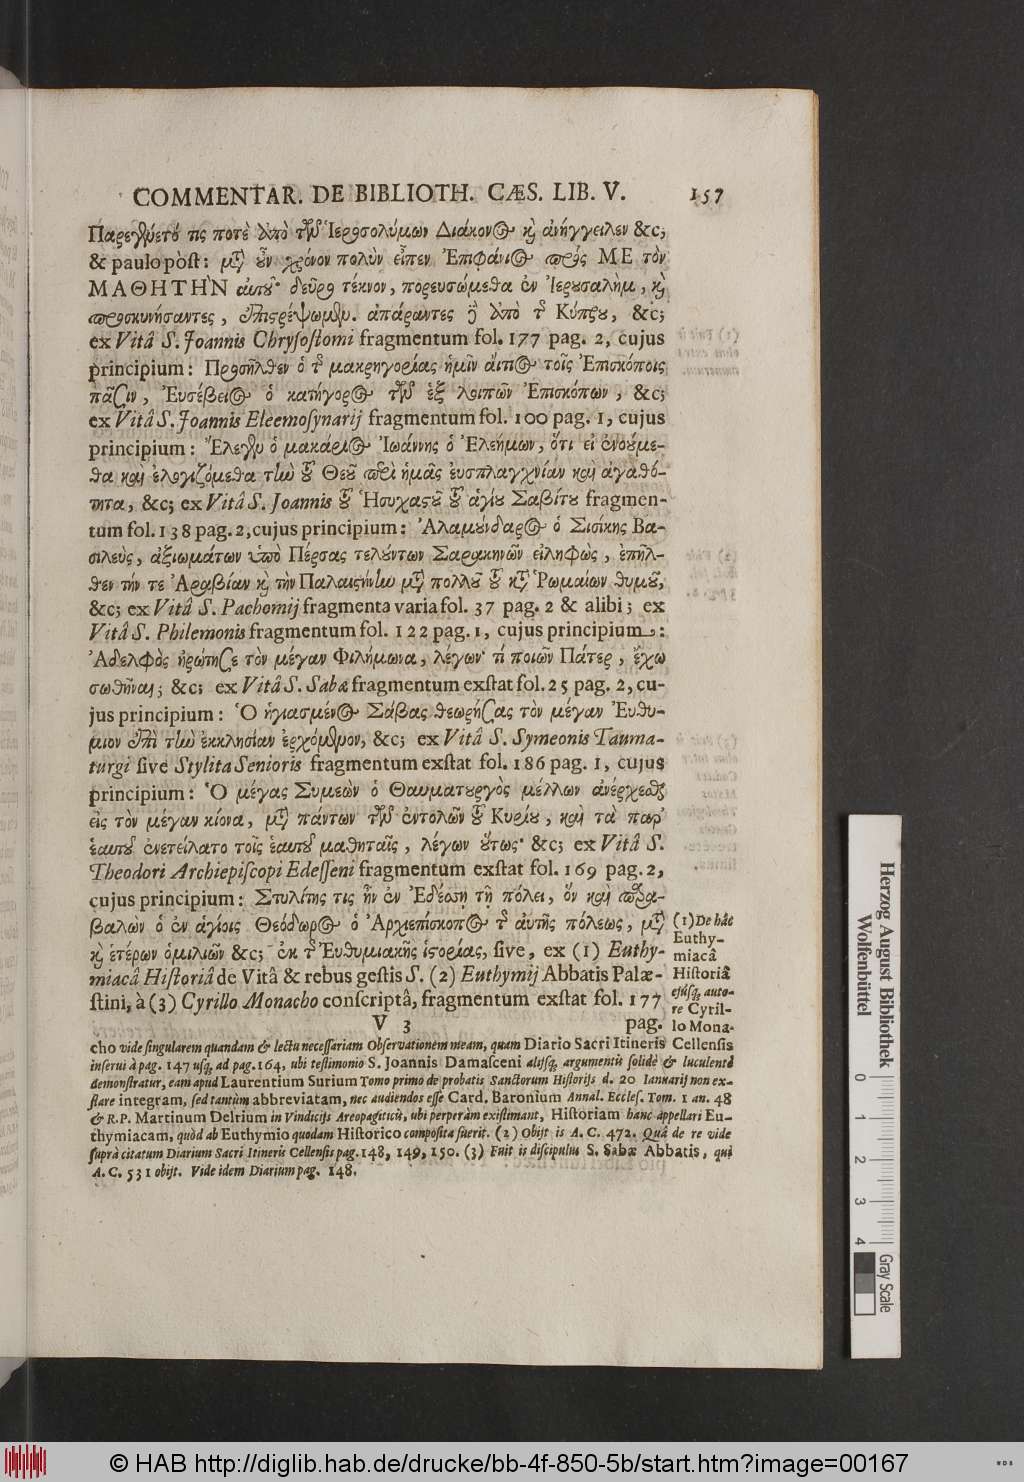 COMMENTAR. DE BIBLIOTH. CÆS. LIB. V. 157
Παρεγένετό τις ποτὲ ἀπὸ τῶν Ἱεροσολύμων Διάκονος καὶ ἀνήγγειλεν &c;
& paulo pòst: μετὰ οὖν χρόνον πολὺν εἶπεν Ἐπιφάνιος πρὸς ΜΕ τὸν
ΜΑΘΗΤῊΝ αὐτοῦ· δεῦρο τέκνον, πορευσώμεθα ἐν Ἱερουσαλὴμ, καὶ
προσκυνήσαντες, ἐπιστρέψωμεν. ἀπάραντες δὲ ἀπὸ τῆς Κύπρου, &c;
ex Vitâ S. Joannis Chrysostomi fragmentum fol. 177 pag. 2, cujus
principium: Προσῆλθεν ὁ τῆς μακρηγορίας ἡμῖν αἴτιος τοῖς Ἐπισκόποις
πᾶσιν, Ἐυσέβειος ὁ κατήγορος τῶν ἓξ λοιπῶν Ἐπισκόπων, &c;
ex Vitâ S. Joannis Eleemosynarij fragmentum fol. 100 pag. 1, cujus
principium: Ἔλεγεν ὁ μακάριος Ἰωάννης ὁ Ἐλεήμων, ὅτι εἰ ἐνούμε-
θα καὶ ἐλογιζόμεθα τὴν τοῦ Θεοῦ περὶ ἡμᾶς ἐυσπλαγχνίαν καὶ ἀγαθό-
τητα, &c; ex Vitâ S. Joannis τοῦ Ἡσυχαστοῦ τοῦ ἁγίου Σαβίτου fragmen-
tum fol. 138 pag. 2, cujus principium: Ἀλαμούνδαρος ὁ Σισίκης Βα-
σιλεὺς, ἀξιωμάτων ὑπὸ Πέρσας τελούντων Σαρακηνῶν εἰληφὼς, ἐπῆλ-
θεν τήν τε Ἀραβίαν καὶ τὴν Παλαιστήνην μετὰ πολλοῦ τοῦ κατὰ Ῥωμαίων θυμοῦ,
&c; ex Vitâ S. Pachomij fragmenta varia fol. 37 pag. 2 & alibi; ex
Vitâ S. Philemonis fragmentum fol. 122 pag. 1, cujus principium:
Ἀδελφὸς ἠρώτησε τὸν μέγαν Φιλήμωνα, λέγων· τί ποιῶν Πάτερ, ἔχω
σωθῆναι; &c; ex Vitâ S. Sabæ fragmentum exstat fol. 25 pag. 2, cu-
jus principium: Ὁ ἡγιασμένος Σάβας θεωρήσας τὸν μέγαν Ἐυθύ-
μιον ἐπὶ τὴν ἐκκλησίαν ἐρχόμενον, &c; ex Vitâ S. Symeonis Tauma-
turgi sive Stylita Senioris fragmentum exstat fol. 186 pag. 1, cujus
principium: Ὁ μέγας Συμεὼν ὁ Θαυματουργὸς μέλλων ἀνέρχεσθαι
εἰς τὸν μέγαν κίονα, μετὰ πάντων τῶν ἐντολῶν τοῦ Κυρίου, καὶ τὰ παρ'
ἑαυτοῦ ἐνετείλατο τοῖς ἑαυτοῦ μαθηταῖς, λέγων οὕτως· &c; ex Vitâ S.
Theodori Archiepiscopi Edesseni fragmentum exstat fol. 169 pag. 2,
cujus principium: Στυλίτης τις ἦν ἐν Ἐδέσσῃ τῇ πόλει, ὃν καὶ παρα-
βαλὼν ὁ ἐν ἁγίοις Θεόδωρος ὁ Ἀρχιεπίσκοπος τῆς ἀυτῆς πόλεως, μετὰ
καὶ ἑτέρων ὁμιλιῶν &c; ἐκ τῆς Ἐυθυμιακῆς ἱστορίας, sive, ex (1) Euthy-
miacâ Historiâ de Vitâ & rebus gestis S. (2) Euthymij Abbatis Palæ-
stini, à (3) Cyrillo Monacho conscriptâ, fragmentum exstat fol. 177
V 3 pag.
(1) De hâc
Euthy-
miacâ
Historiâ
ejúsq; auto-
re Cyril-
lo Mona-
cho vide singularem quandam & lectu necessariam Observationem meam, quam Diario Sacri Itineris Cellensis
inserui à pag. 147 usq; ad pag. 164, ubi testimonio S. Joannis Damasceni alijsq; argumentis solidè & luculentè
demonstratur, eam apud Laurentium Surium Tomo primo de probatis Sanctorum Historijs d. 20 Ianuarij non ex-
stare integram, sed tantùm abbreviatam, nec audiendos esse Card. Baronium Annal. Eccles. Tom. 1 an. 48
& R.P. Martinum Delrium in Vindicijs Areopagiticis, ubi perperàm existimant, Historiam hanc appellari Eu-
thymiacam, quòd ab Euthymio quodam Historico composita fuerit. (2) Obijt is A. C. 472. Quâ de re vide
suprà citatum Diarium Sacri Itineris Cellensis pag. 148, 149, 150. (3) Fuit is discipulus S. Sabæ Abbatis, qui
A. C. 531 obijt. Vide idem Diarium pag. 148.
Herzog August Bibliothek
Wolfenbüttel
0 1 2 3 4
Gray Scale
© HAB http://diglib.hab.de/drucke/bb-4f-850-5b/start.htm?image=00167